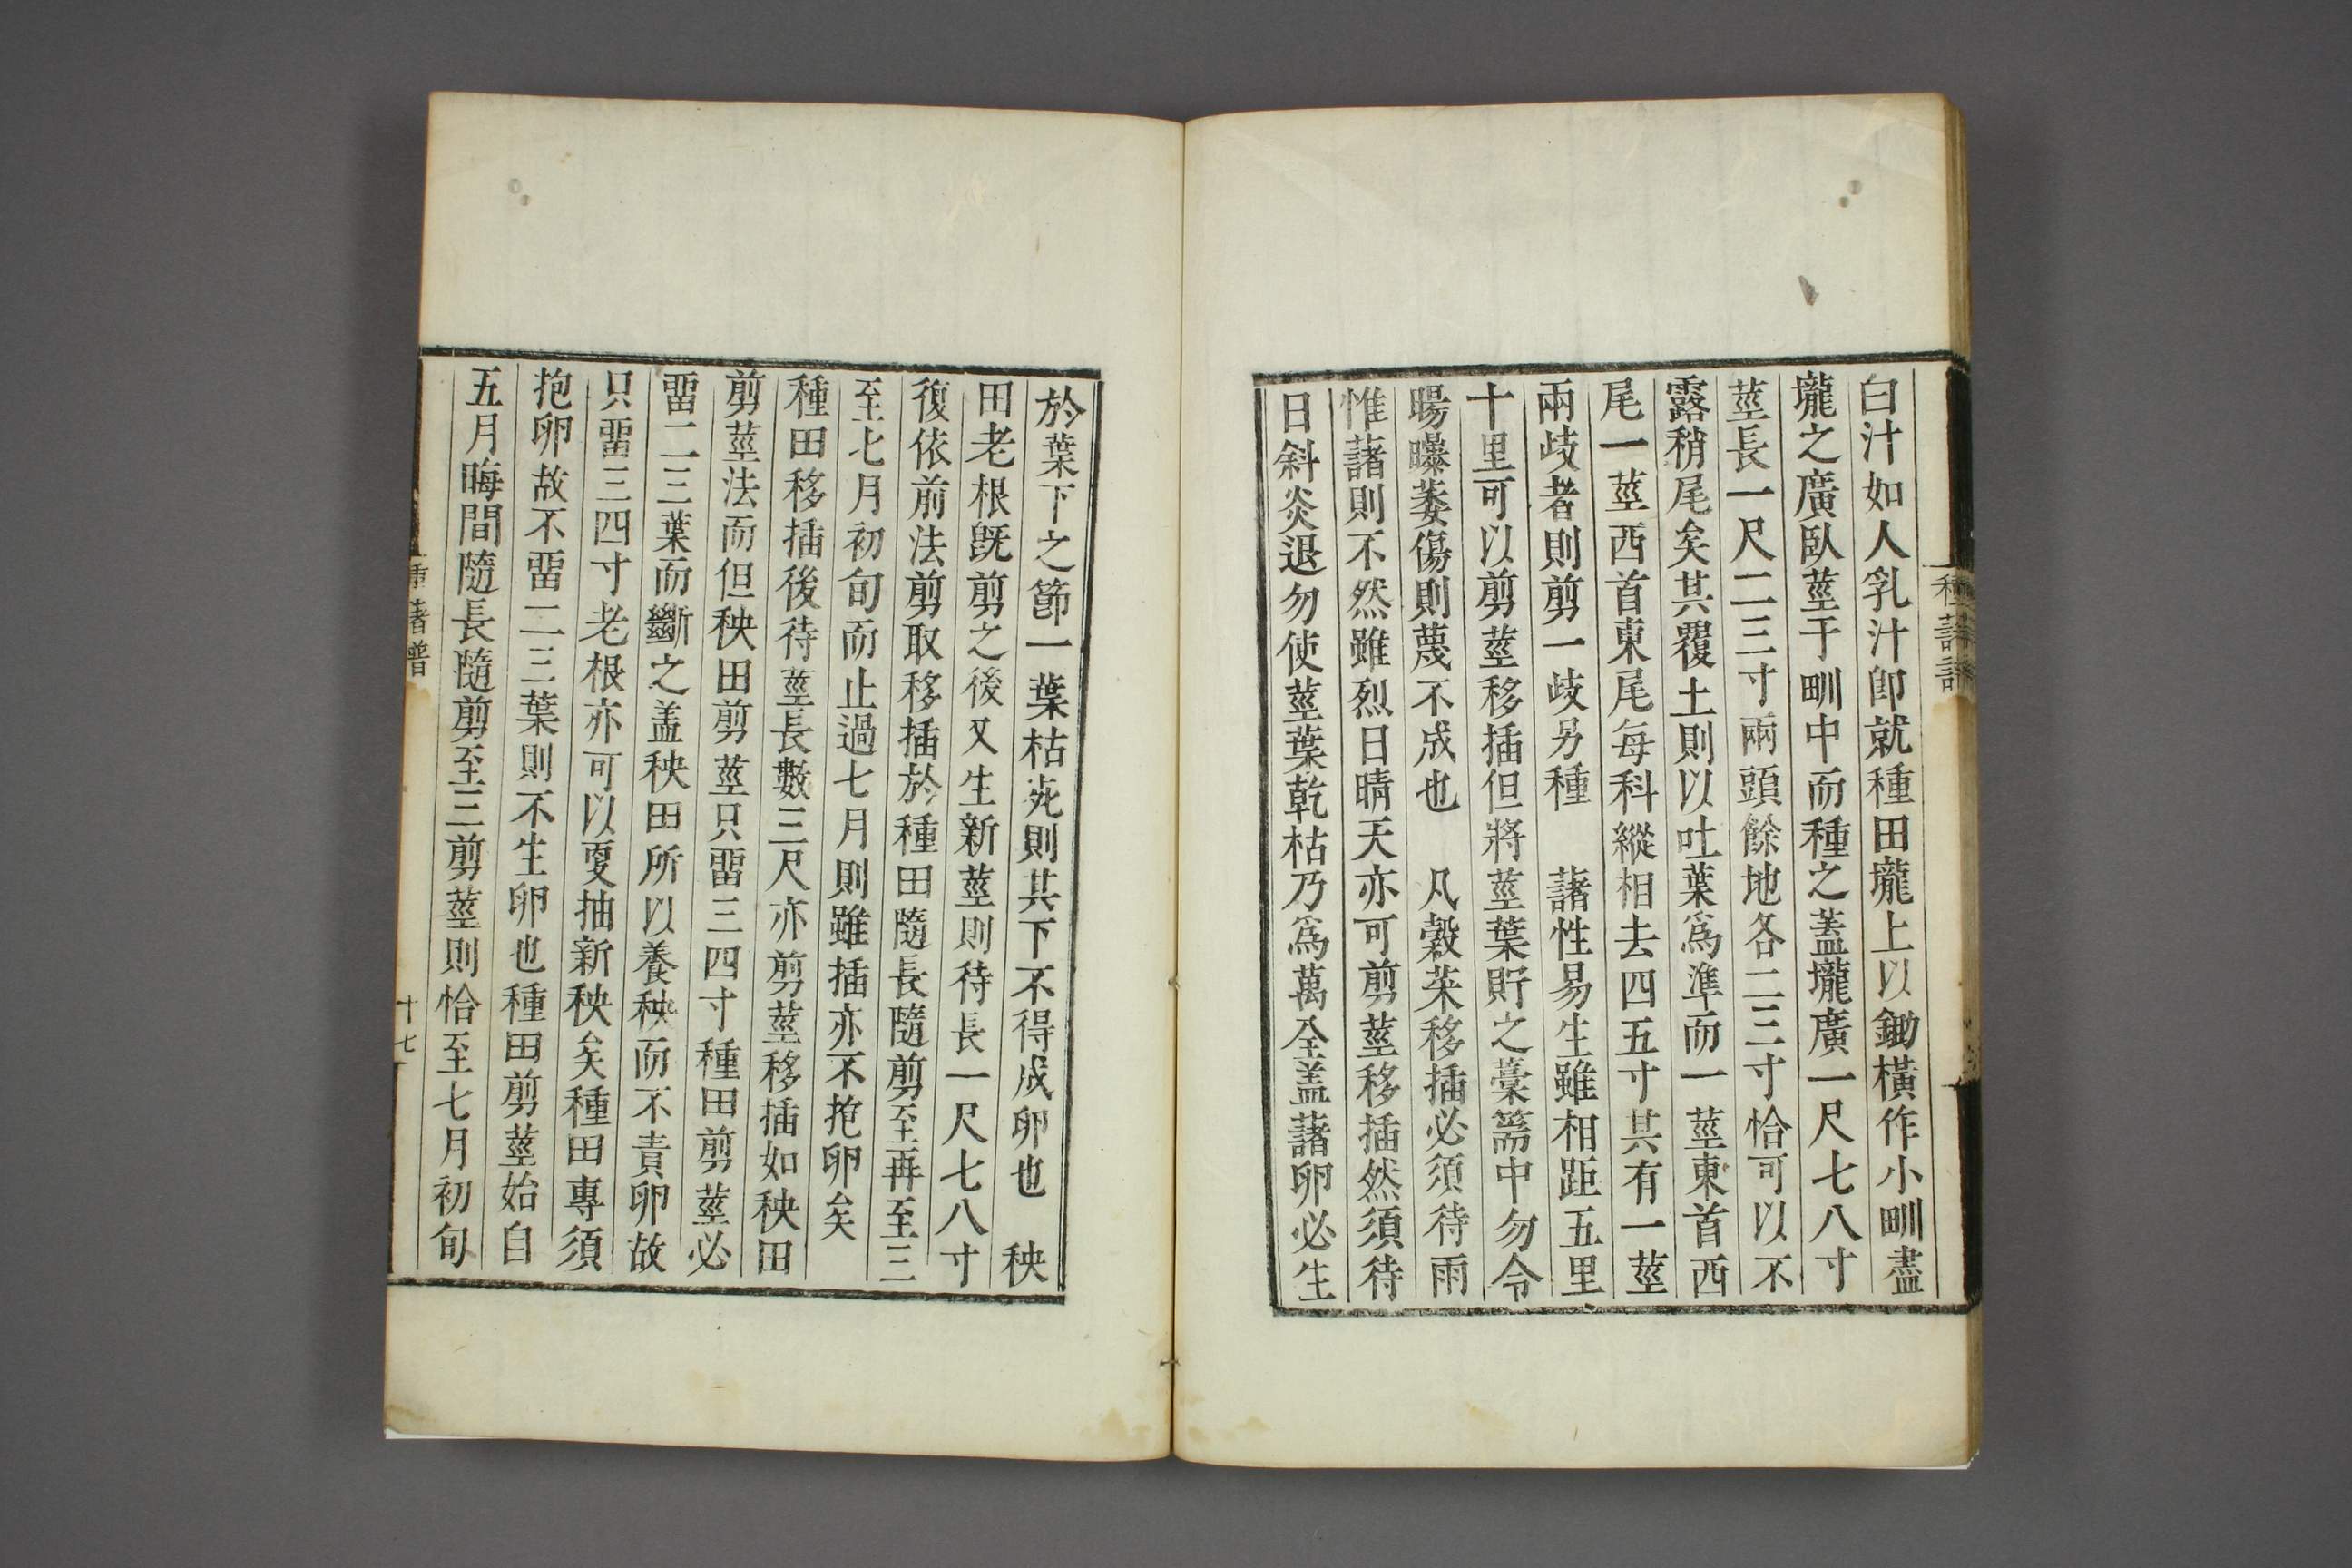 種藷譜
白汁如人乳汁卽就種田壠上以鋤橫作小甽盡
壠之廣臥莖于甽中而種之蓋壠廣一尺七八寸
莖長一尺二三寸兩頭餘地各二三寸恰可以不
露稍尾矣其覆土則以吐葉爲準而一莖東首西
尾一莖西首東尾每科縱相去四五寸其有一莖
兩歧者則剪一歧另種　藷性易生雖相距五里
十里可以剪莖移插但將莖葉貯之藁篅中勿令
暘曝萎傷則蔑不成也　凡穀菜移插必須待雨
惟藷則不然雖烈日晴天亦可剪莖移插然須待
日斜炎退勿使莖葉乾枯乃爲萬全盖藷卵必生
於葉下之節一葉枯死則其下不得成卵也　秧
田老根旣剪之後又生新莖則待長一尺七八寸
復依前法剪取移插於種田隨長隨剪至再至三
至七月初旬而止過七月則雖插亦不抱卵矣
種田移插後待莖長數三尺亦剪莖移插如秧田
剪莖法而但秧田剪莖只畱三四寸種田剪莖必
畱二三葉而斷之盖秧田所以養秧而不責卵故
只畱三四寸老根亦可以更抽新秧矣種田專須
抱卵故不畱二三葉則不生卵也種田剪莖始自
五月晦間隨長隨剪至三剪莖則恰至七月初旬
種藷譜
十七